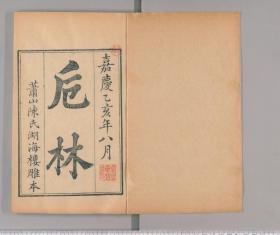 嘉慶乙亥年八月
卮林
蕭山陳氏湖海樓雕本